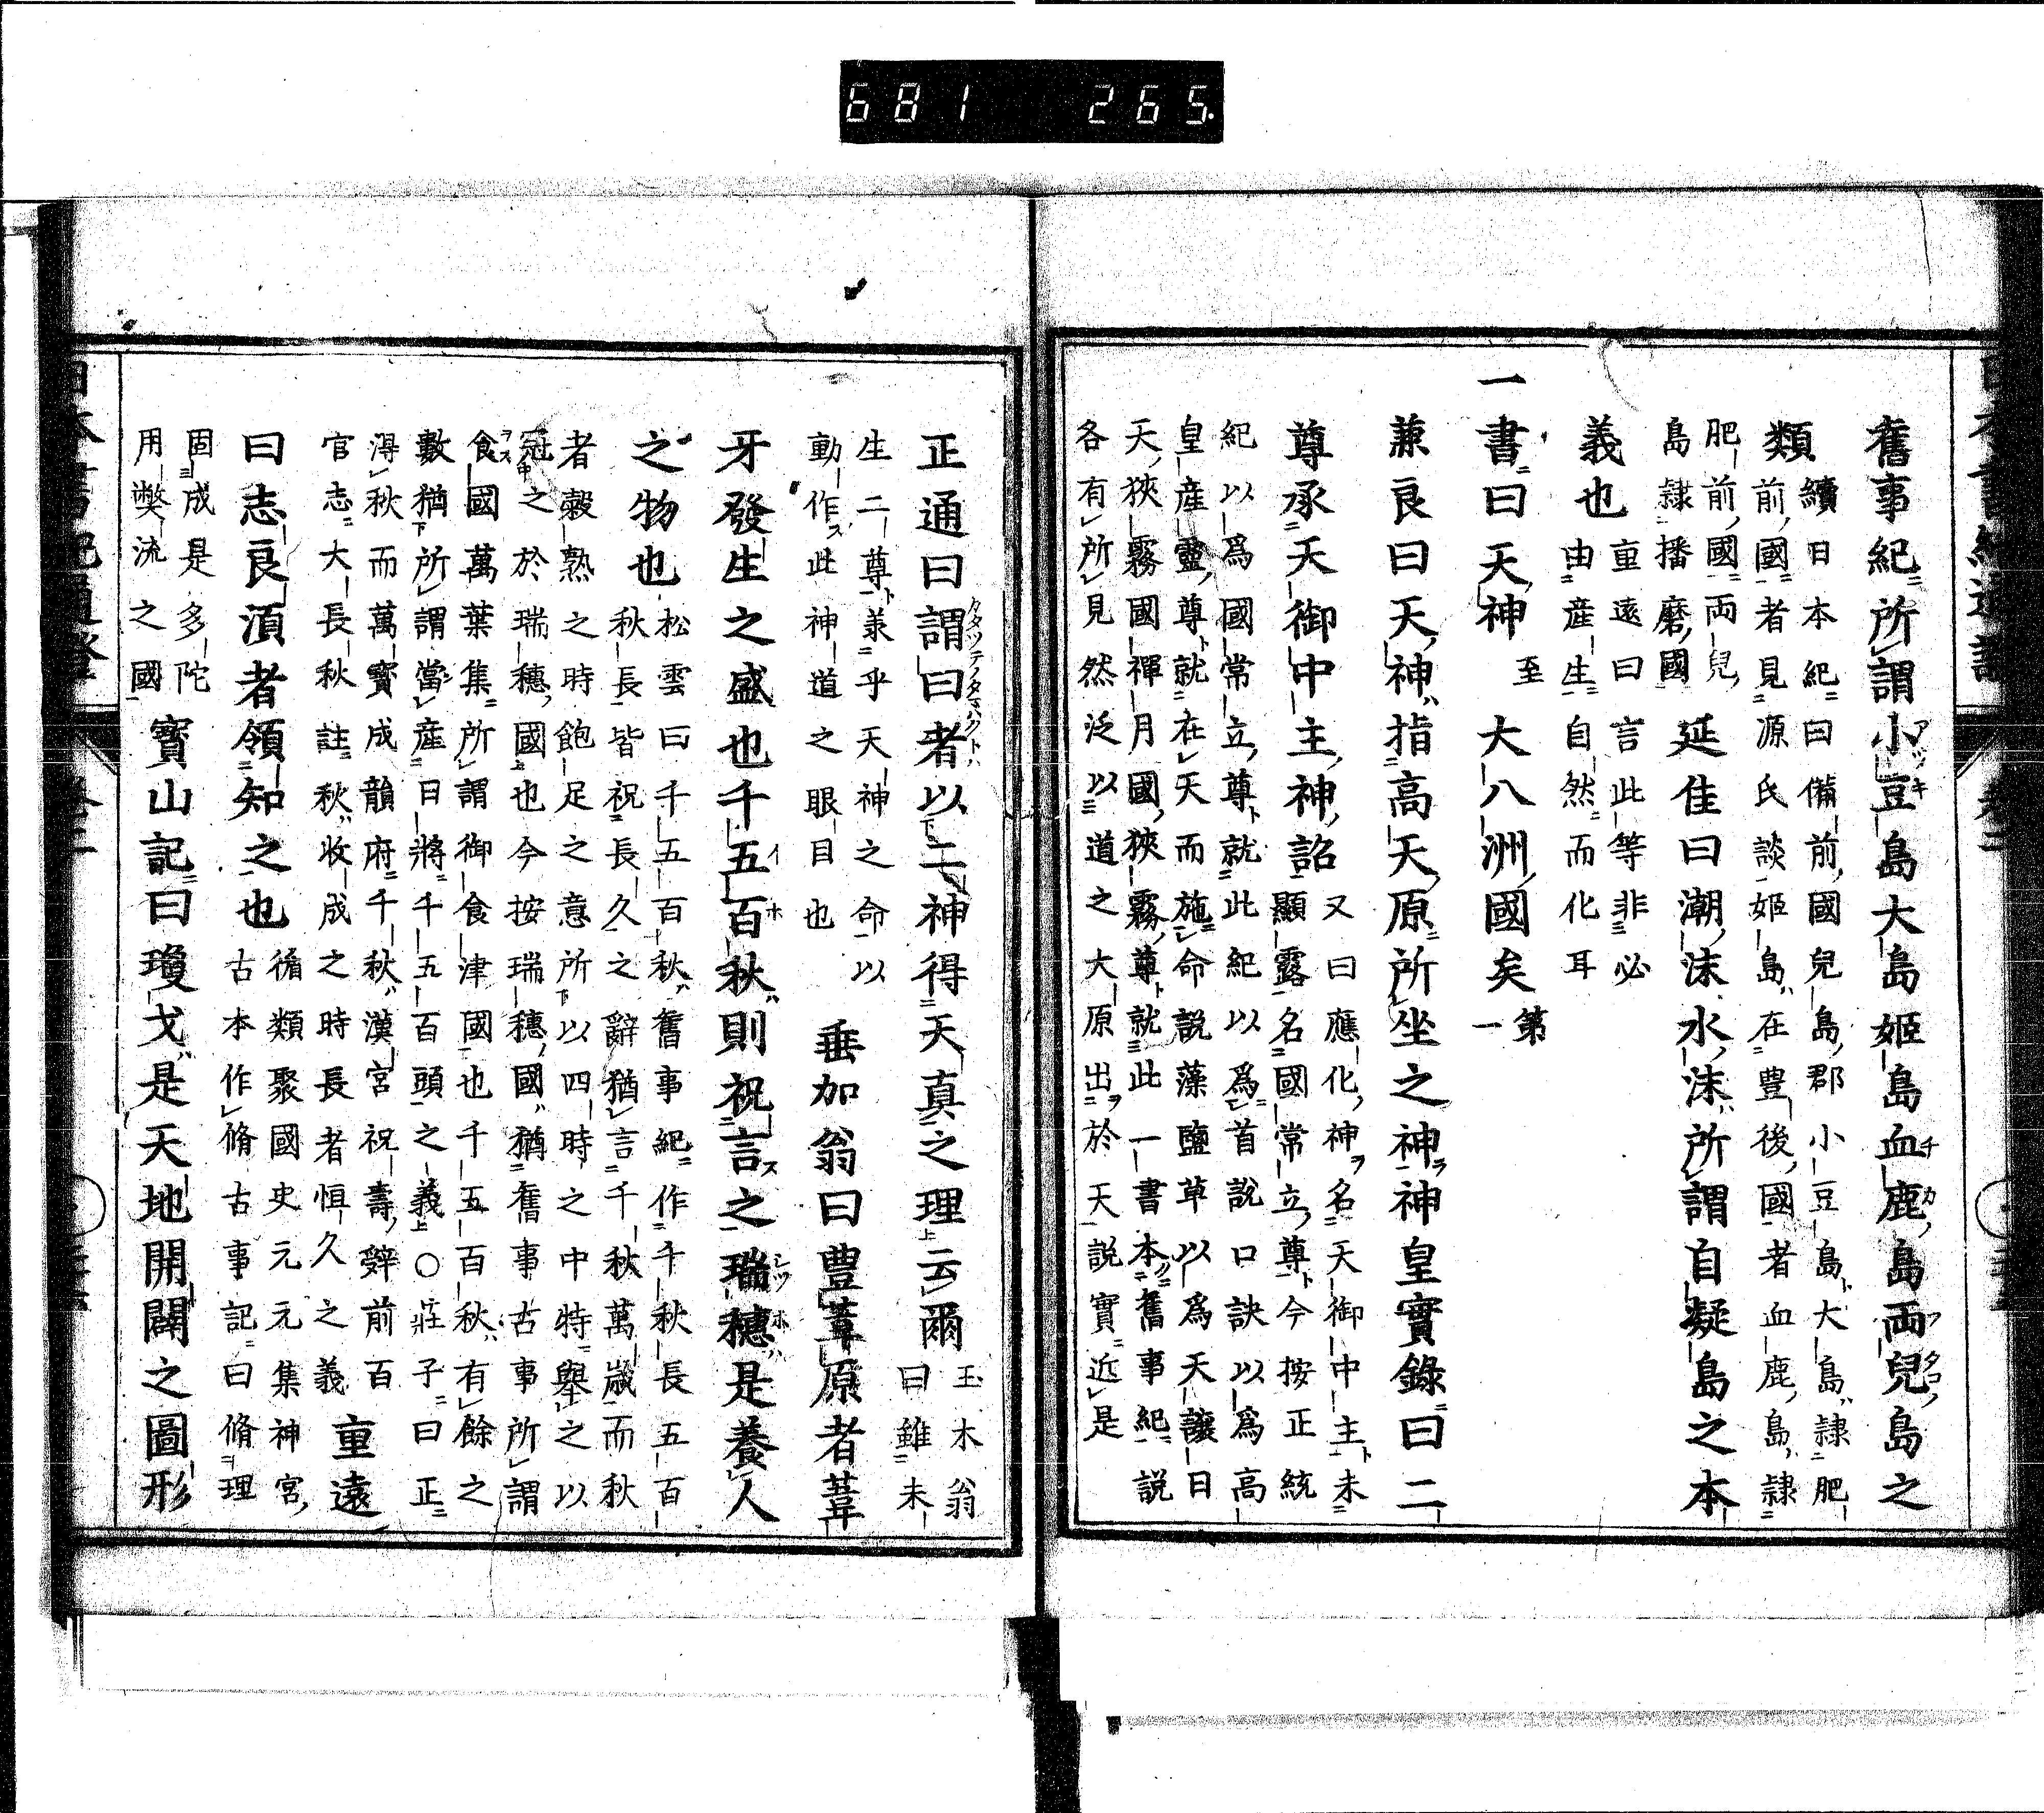 681 265
舊事紀所謂小豆島大島姬島血鹿島兩兒島之
類
續日本紀曰備前國兒島郡小豆島大島隷肥
前國者見源氏談姬島在豊後國者血鹿島隷
肥前國両兒
島隷播磨國
延佳曰潮沫水沫所謂自凝島之本
義也
重遠曰言此等非必
由産生自然而化耳
一書曰天神至大八洲國矣第一
兼良曰天神指高天原所坐之神神皇實錄曰二
尊承天御中主神詔
又曰應化神名天御中主未
顯露名國常立尊今按正統
紀以爲國常立尊就此紀以爲首說口訣以爲高
皇産靈尊就在天而施命說藻鹽草以爲天讓日
天狹霧國禪月國狹霧尊就此一書本舊事紀説
各有所見然泛以道之大原出於天説實近是
正通曰謂曰者以二神得天真之理云爾
玉木翁
曰雖未
生二尊兼乎天神之命以
動作此神道之眼目也
垂加翁曰豊葦原者葦
牙發生之盛也千五百秋則祝言之瑞穗是養人
之物也
松雲曰千五百秋舊事紀作千秋長五百
秋長皆祝長久之辭猶言千秋萬歲而秋
者穀熟之時飽足之意所以四時之中特舉之以
冠之於瑞穗國也今按瑞穗國猶舊事古事所謂
食國萬葉集所謂御食津國也千五百秋有餘之
數猶所謂當産日將千五百頭之義○莊子曰正
得秋而萬寶成韻府千秋漢宮祝壽辭前百
官志大長秋註秋收成之時長者恒久之義
重遠
曰志良須者領知之也
循類聚國史元元集神宮
古本作脩古事記曰脩理
固成是多陀
用弊流之國
寳山記曰瓊戈是天地開闢之圖形